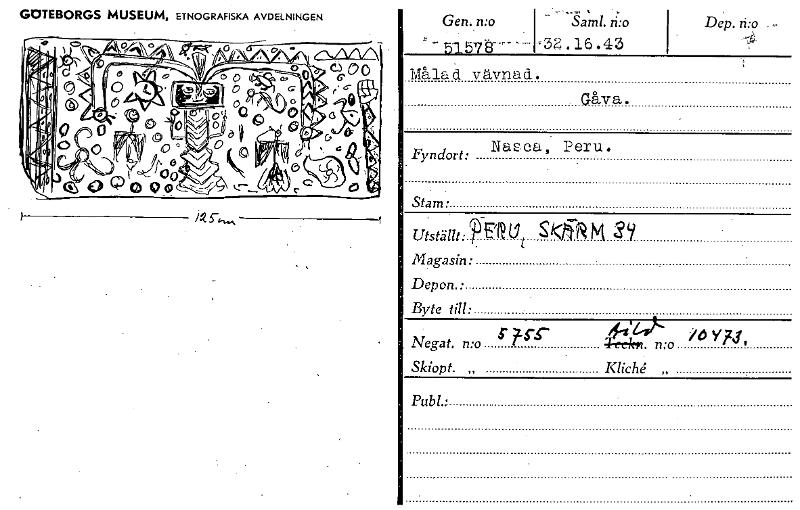 GÖTEBORGS MUSEUM, ETNOGRAFISKA AVDELNINGEN
125 cm
Gen. n:o Saml. n:o Dep. n:o
51578 32.16.43
Målad vävnad.
Gåva.
Fyndort: Nasca, Peru.
Stam:
Utställt: PERU, SKÄRM 34
Magasin:
Depon.:
Byte till:
Negat. n:o 5755 Bild Teckn. n:o 10473.
Skiopt. „ Kliché „
Publ.: